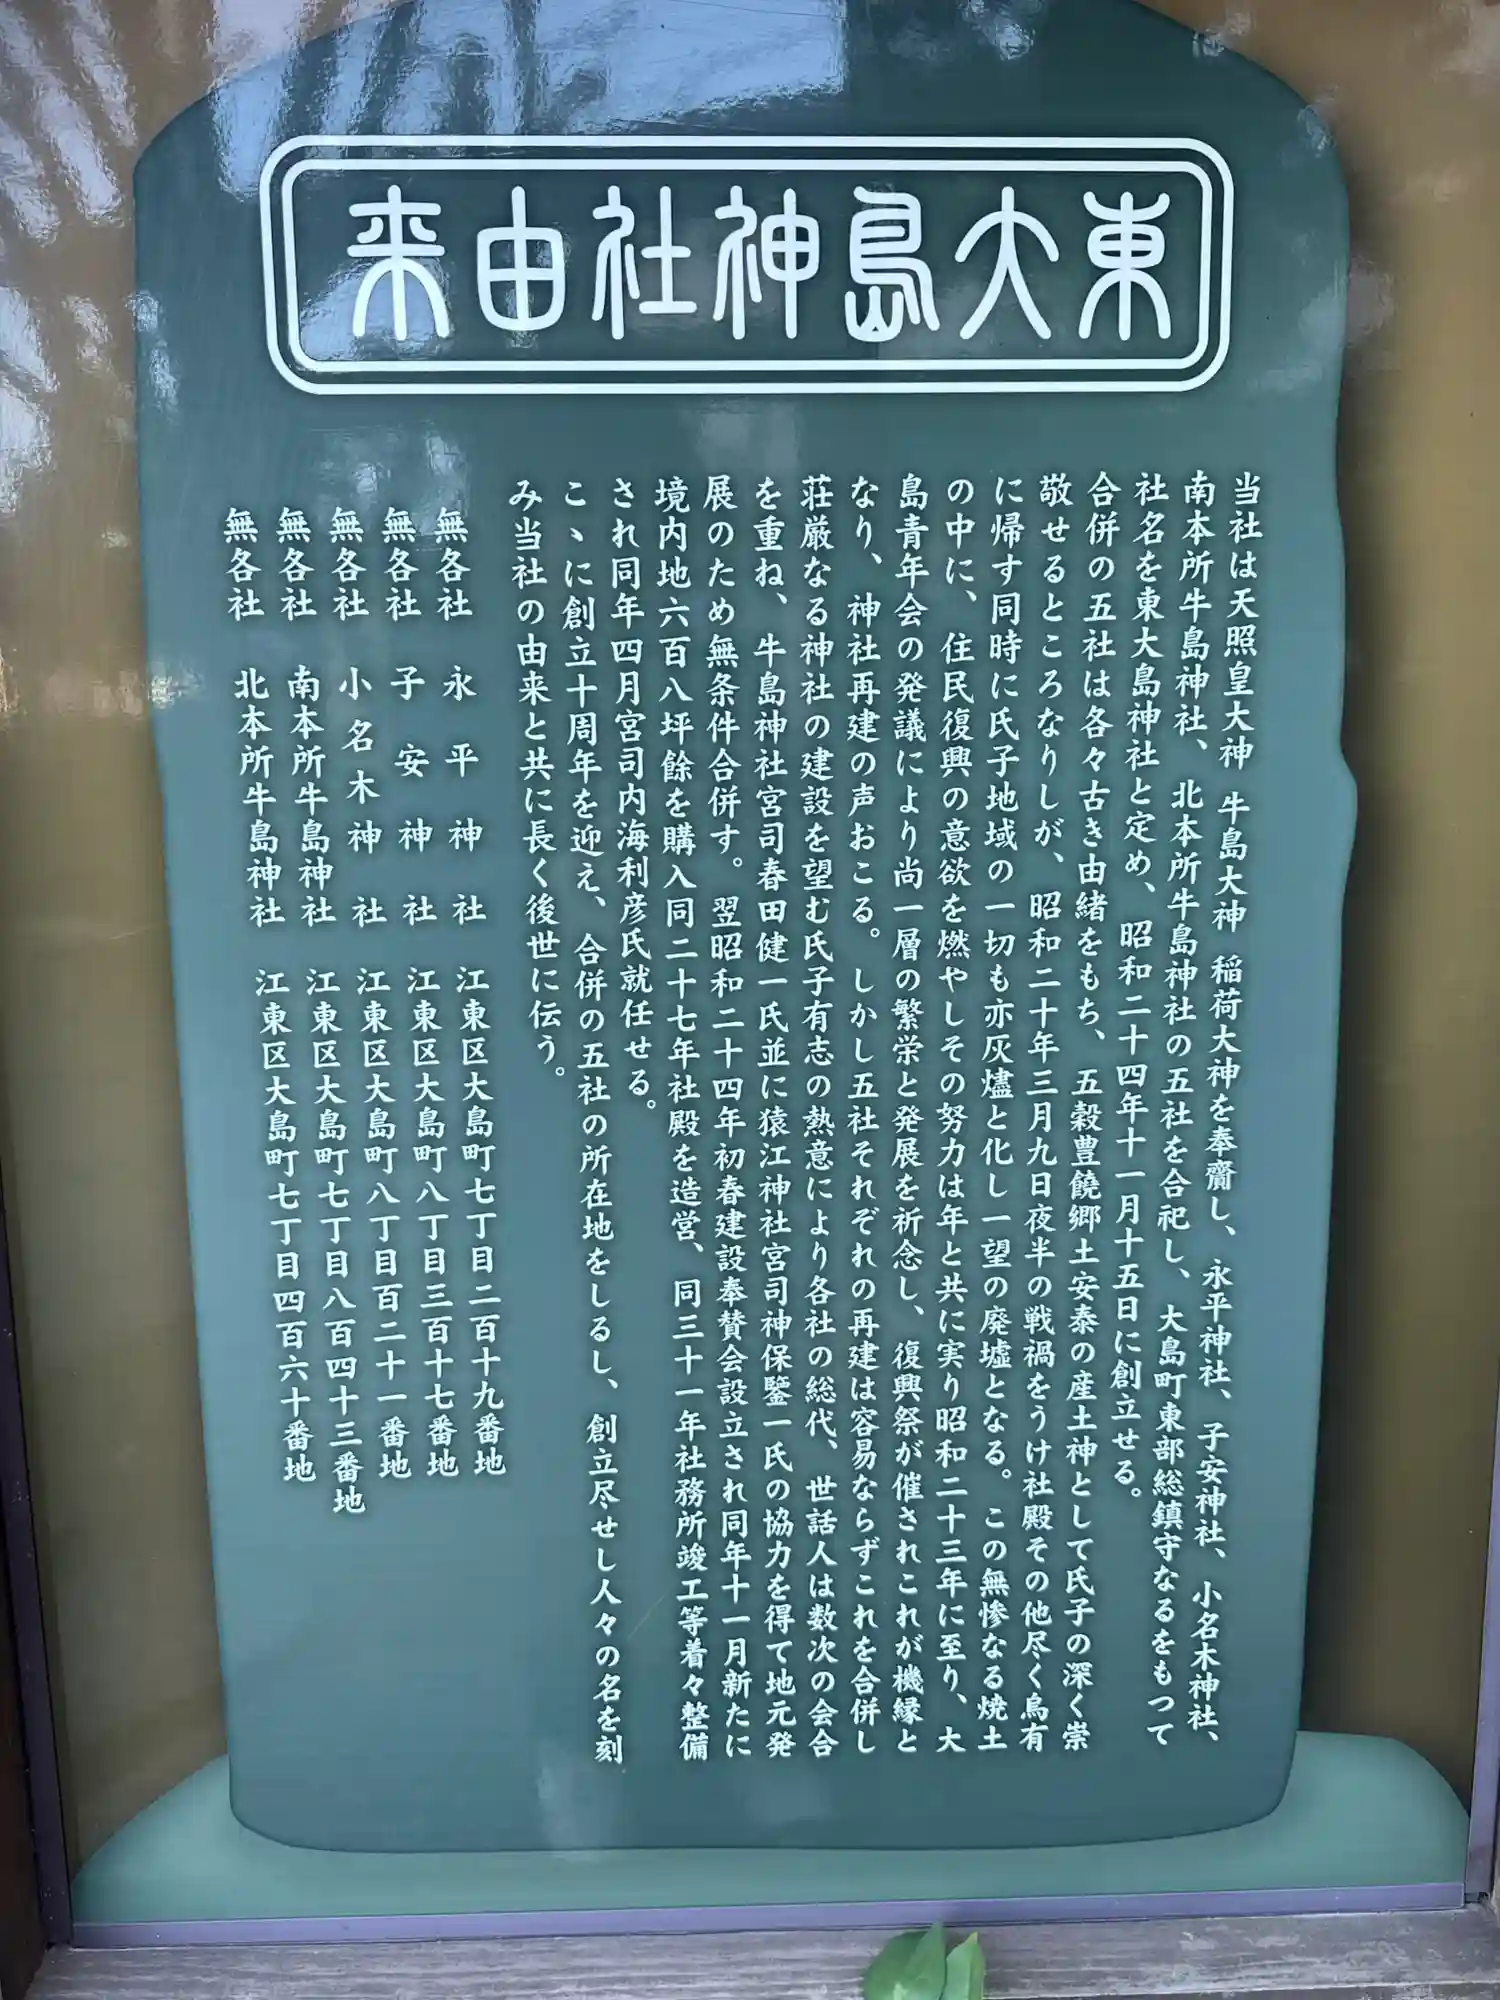 東大島神社由来
当社は天照皇大神 牛島大神 稲荷大神を奉齎し、永平神社、子安神社、小名木神社、
南本所牛島神社、北本所牛島神社の五社を合祀し、大島町東部総鎮守なるをもつて
社名を東大島神社と定め、昭和二十四年十一月十五日に創立せる。
合併の五社は各々古き由緒をもち、五穀豊饒郷土安泰の産土神として氏子の深く崇
敬せるところなりしが、昭和二十年三月九日夜半の戦禍をうけ社殿その他尽く烏有
に帰す同時に氏子地域の一切も亦灰燼と化し一望の廃墟となる。この無惨なる焼土
の中に、住民復興の意欲を燃やしその努力は年と共に実り昭和二十三年に至り、大
島青年会の発議により尚一層の繁栄と発展を祈念し、復興祭が催されこれが機縁と
なり、神社再建の声おこる。しかし五社それぞれの再建は容易ならずこれを合併し
荘厳なる神社の建設を望む氏子有志の熱意により各社の総代、世話人は数次の会合
を重ね、牛島神社宮司春田健一氏並に猿江神社宮司神保鑒一氏の協力を得て地元発
展のため無条件合併す。翌昭和二十四年初春建設奉賛会設立され同年十一月新たに
境内地六百八坪餘を購入同二十七年社殿を造営、同三十一年社務所竣工等着々整備
され同年四月宮司内海利彦氏就任せる。
こゝに創立十周年を迎え、合併の五社の所在地をしるし、創立尽せし人々の名を刻
み当社の由来と共に長く後世に伝う。
無各社 永平神社 江東区大島町七丁目二百十九番地
無各社 子安神社 江東区大島町八丁目三百十七番地
無各社 小名木神社 江東区大島町八丁目百二十一番地
無各社 南本所牛島神社 江東区大島町七丁目八百四十三番地
無各社 北本所牛島神社 江東区大島町七丁目四百六十番地